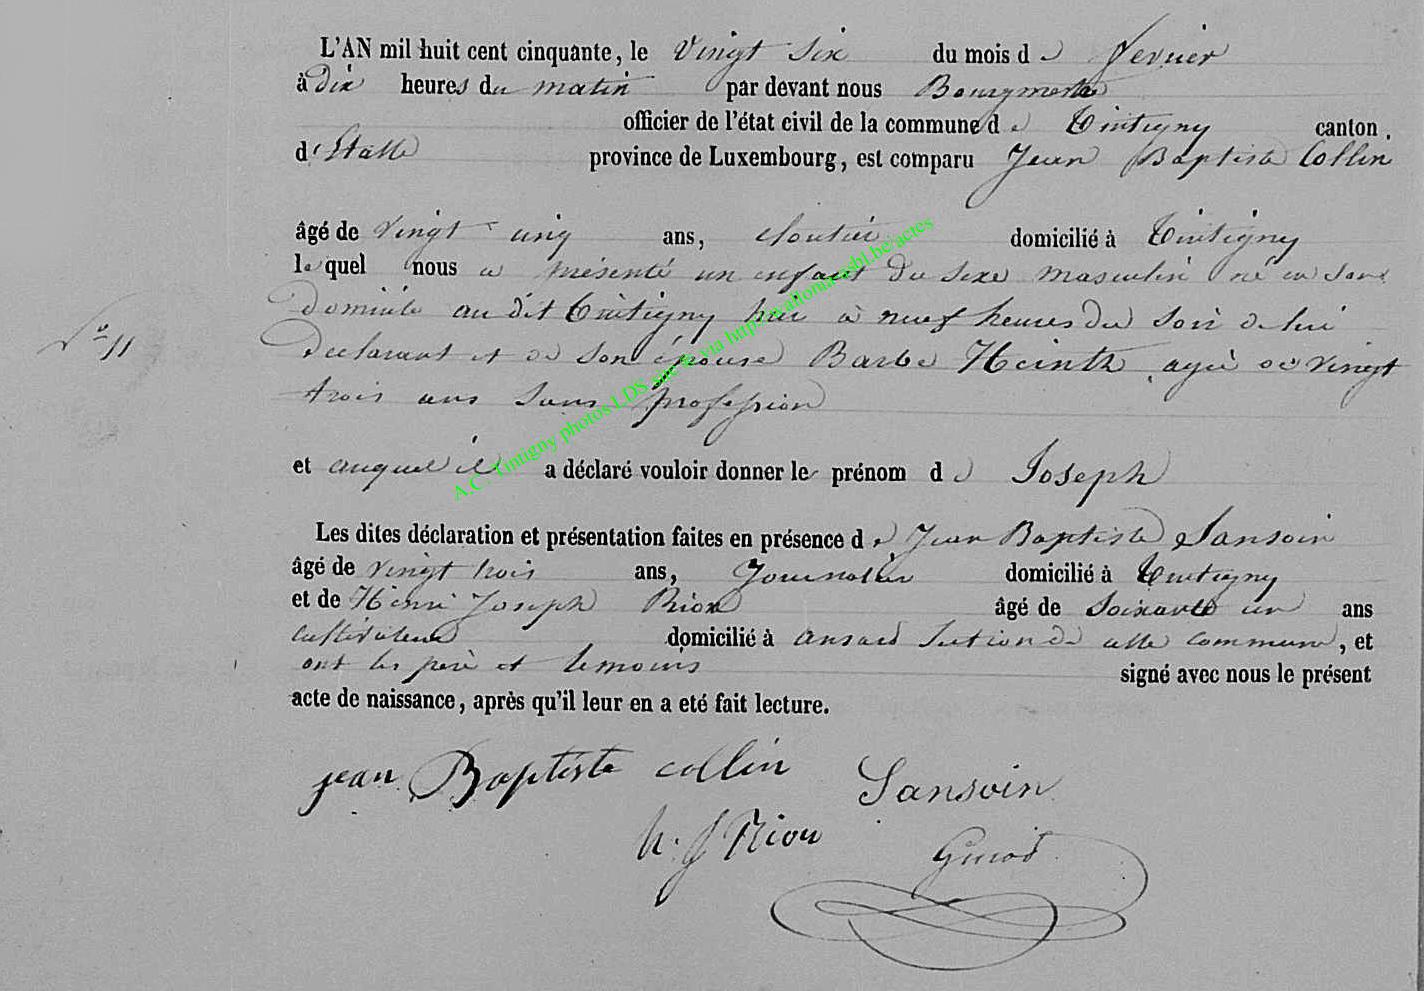 L'AN mil huit cent cinquante, le vingt six du mois de fevrier
à dix heures du matin par devant nous Bourgmestre
officier de l'état civil de la commune de Tintigny canton
d'Etalle province de Luxembourg, est comparu Jean Baptiste Collin
âgé de vingt cinq ans, cloutier domicilié à Tintigny
lequel nous a présenté un enfant du sexe masculin né en son
domicile au dit Tintigny hier à neuf heures du soir de lui
N° 11
declarant et de son épouse Barbe Heinth agée de vingt
trois ans sans profession
et auquel il a déclaré vouloir donner le prénom de Joseph
Les dites déclaration et présentation faites en présence de Jean Baptiste Sansoin
âgé de vingt trois ans, Journalier domicilié à Tintigny
et de Henri Joseph Rion âgé de soixante un ans
cultivateur domicilié à ansart section de cette commune, et
ont les père et temoins signé avec nous le présent
acte de naissance, après qu'il leur en a eté fait lecture.
jean Baptiste collin Sansoin
h. J Rion
A.C. Tintigny photos LDS site via http://wallonia-asbl.be/actes